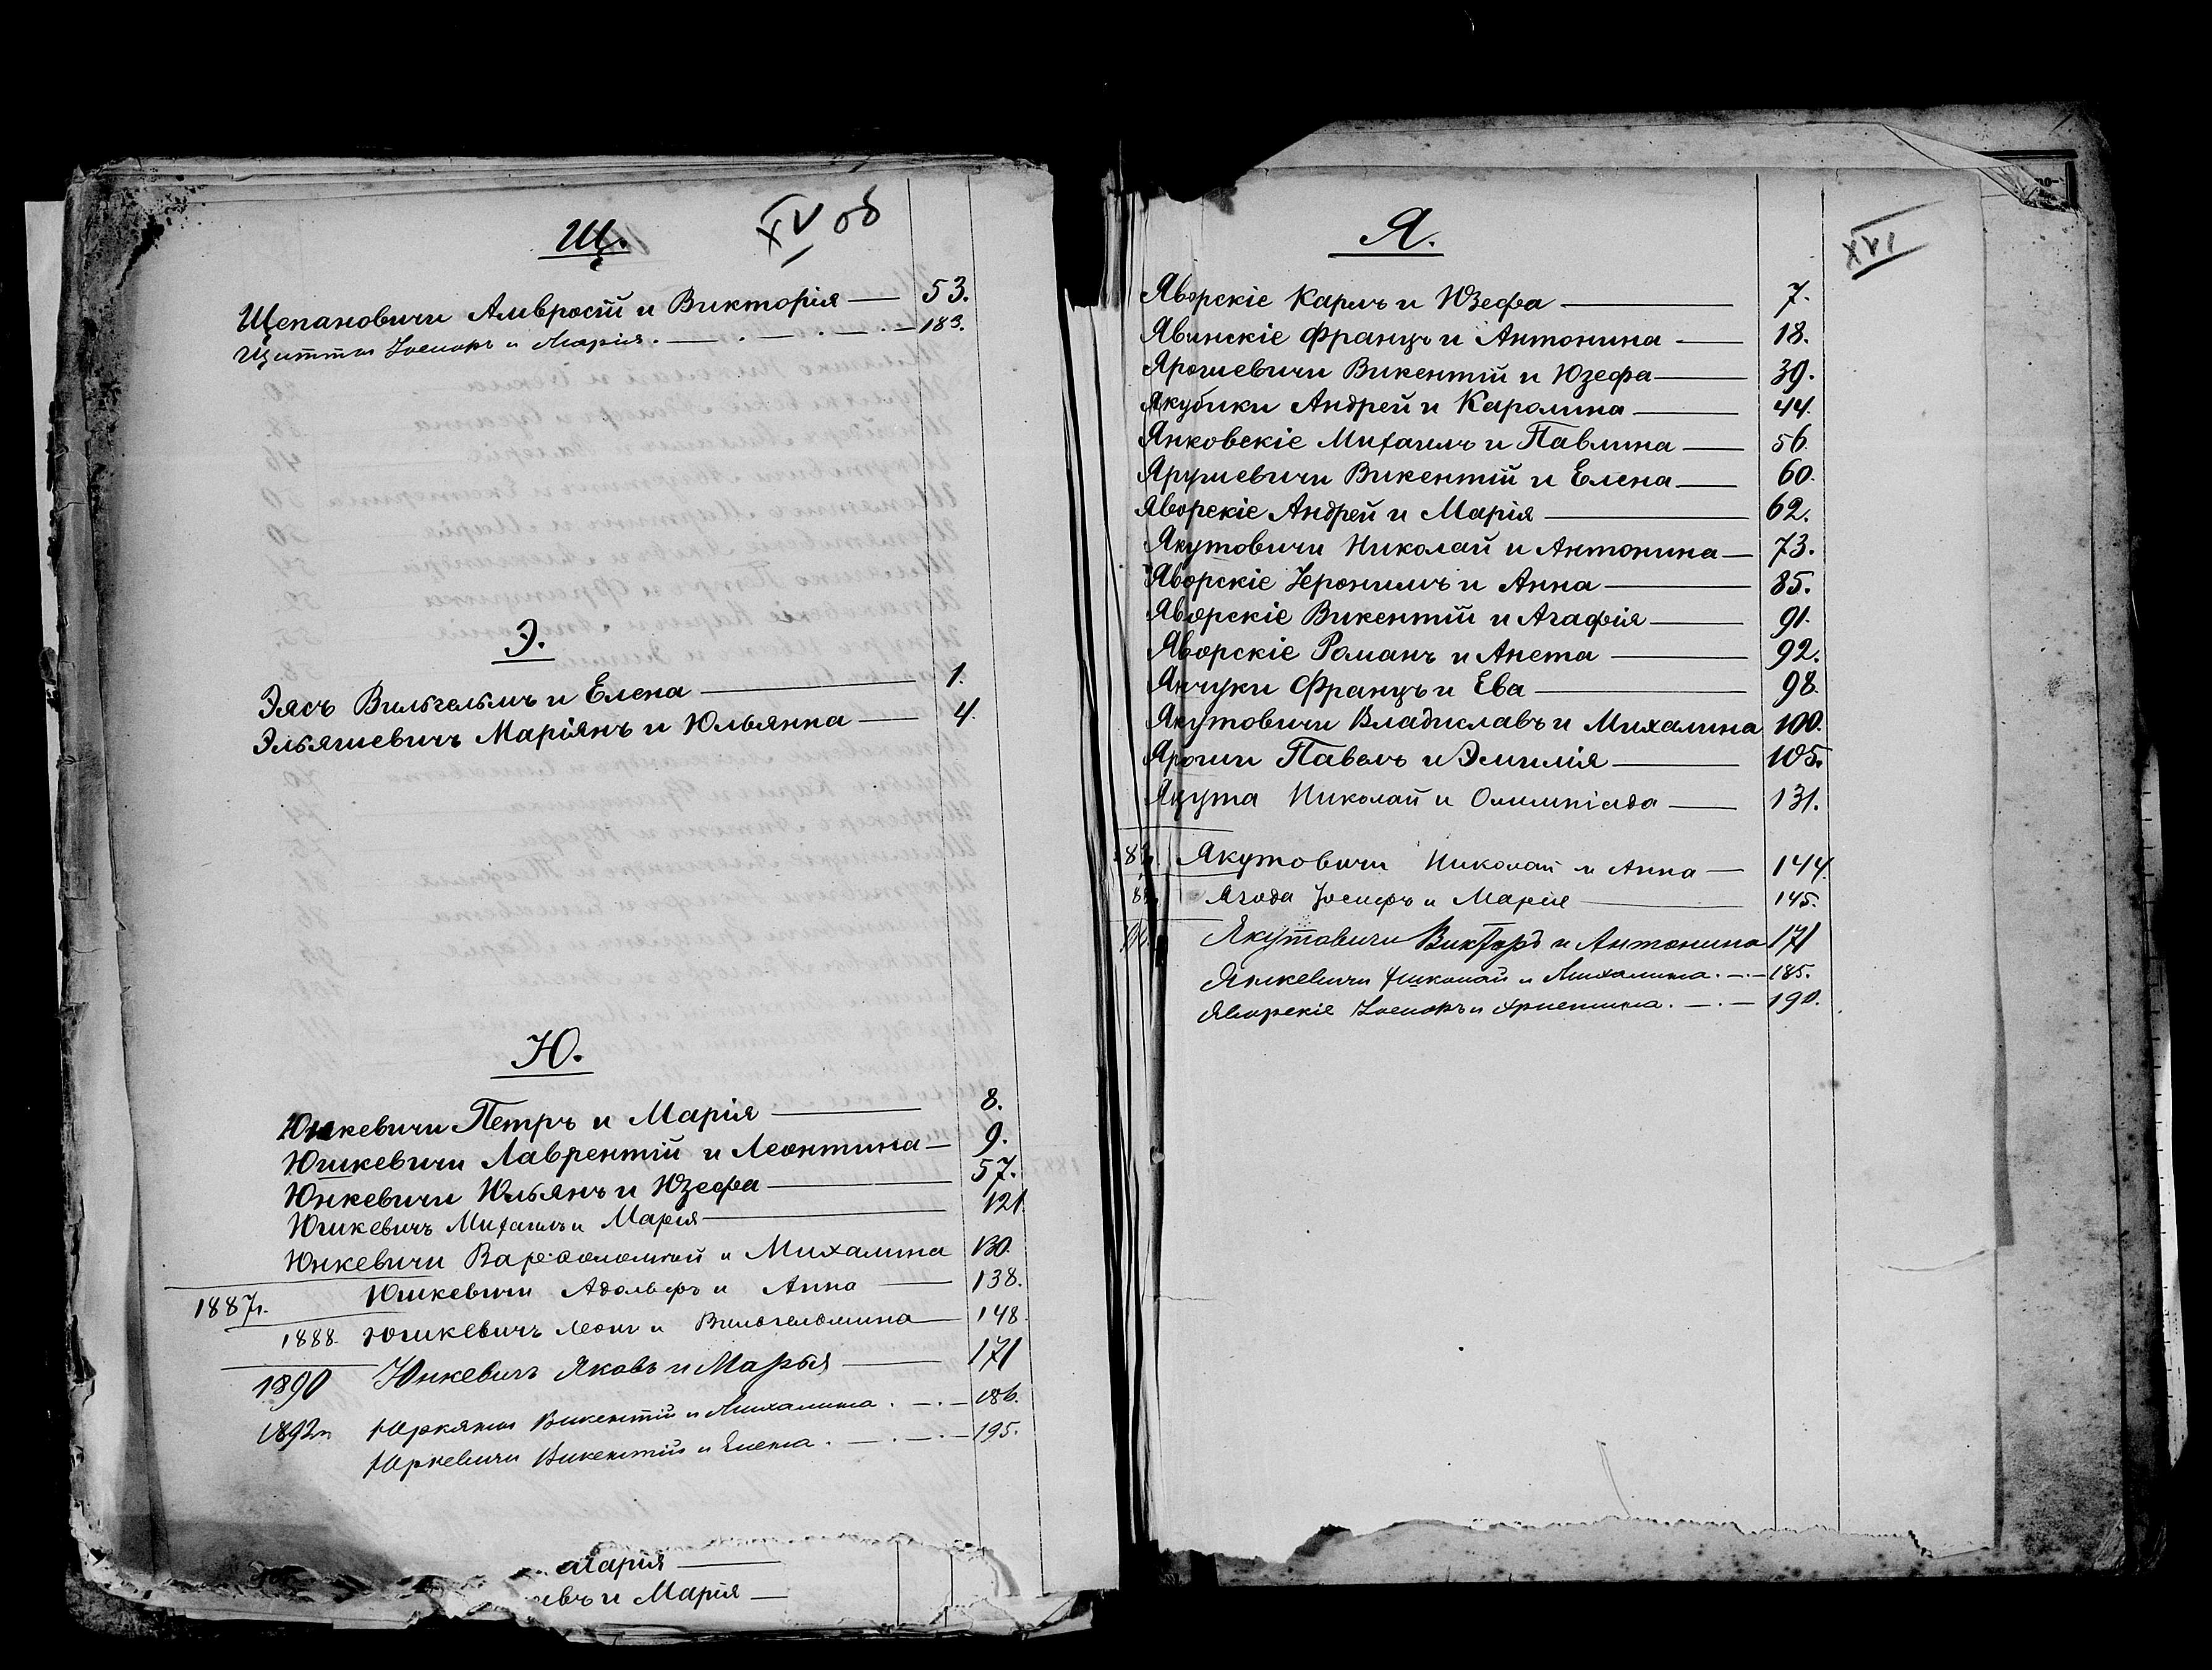 Щ.
XV об
Щепановичи Амвросій и Викторія — 53.
Щиттъ Іосифъ и Марія. — . — . — . — 183.
Э.
Элсъ Вильгельмъ и Елена — 1.
Эльяшевичъ Маріянъ и Юльянна — 4.
Ю.
Юнкевичи Петръ и Марія — 8.
Юшкевичи Лаврентій и Леонтина — 9.
Юнкевичи Юльянъ и Юзефа — 57.
Юшкевичъ Михаилъ и Марія — 121
Юнкевичи Варѳоломей и Михалина 130.
1887г. Юшкевичи Адольфъ и Анна — 138.
1888. Юшкевичъ Леон и Вильгельмина — 148.
1890 Юнкевичъ Яковъ и Марья — 171
1892г Викентій и Михалина . — . — 186.
Юркевичи Викентій и Елена . — . — . — 195.
Марія —
и Марія —
Я.
XVI
Яворскіе Карлъ и Юзефа — 7.
Явинскіе Францъ и Антонина — 18.
Ярошевичи Викентій и Юзефа — 39.
Якубики Андрей и Каролина — 44.
Янковскіе Михаилъ и Павлина — 56.
Ярушевичи Викентій и Елена — 60.
Яворскіе Андрей и Марія — 62.
Якутовичи Николай и Антонина — 73.
Яворскіе Іеронимъ и Анна — 85.
Яворскіе Викентій и Агафія — 91.
Яворскіе Романъ и Анета — 92.
Янчуки Францъ и Ева — 98.
Якутовичи Владиславъ и Михалина 100.
Яроши Павелъ и Эмилія — 105.
Якута Николай и Олимпіада — 131.
Якутовичи Николай и Анна — 144.
Ягода Іосифъ и Марія — 145.
Якутовичи Викторъ и Антонина 171
Янкевичи Николай и Михалина. — . — 185.
Яворскіе Іосифъ и Христина. — . — 190.